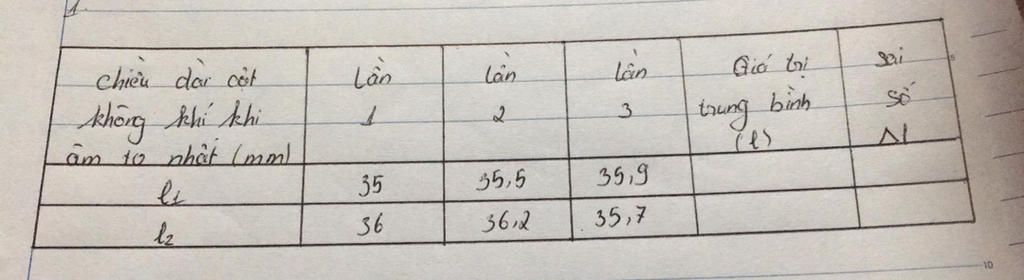 1.
chiều dài cột không khí khi âm to nhất (mm) Lần 1 Lần 2 Lần 3 Giá trị trung bình (l) sai số Δl
l1 35 35,5 35,9
l2 36 36,2 35,7
10